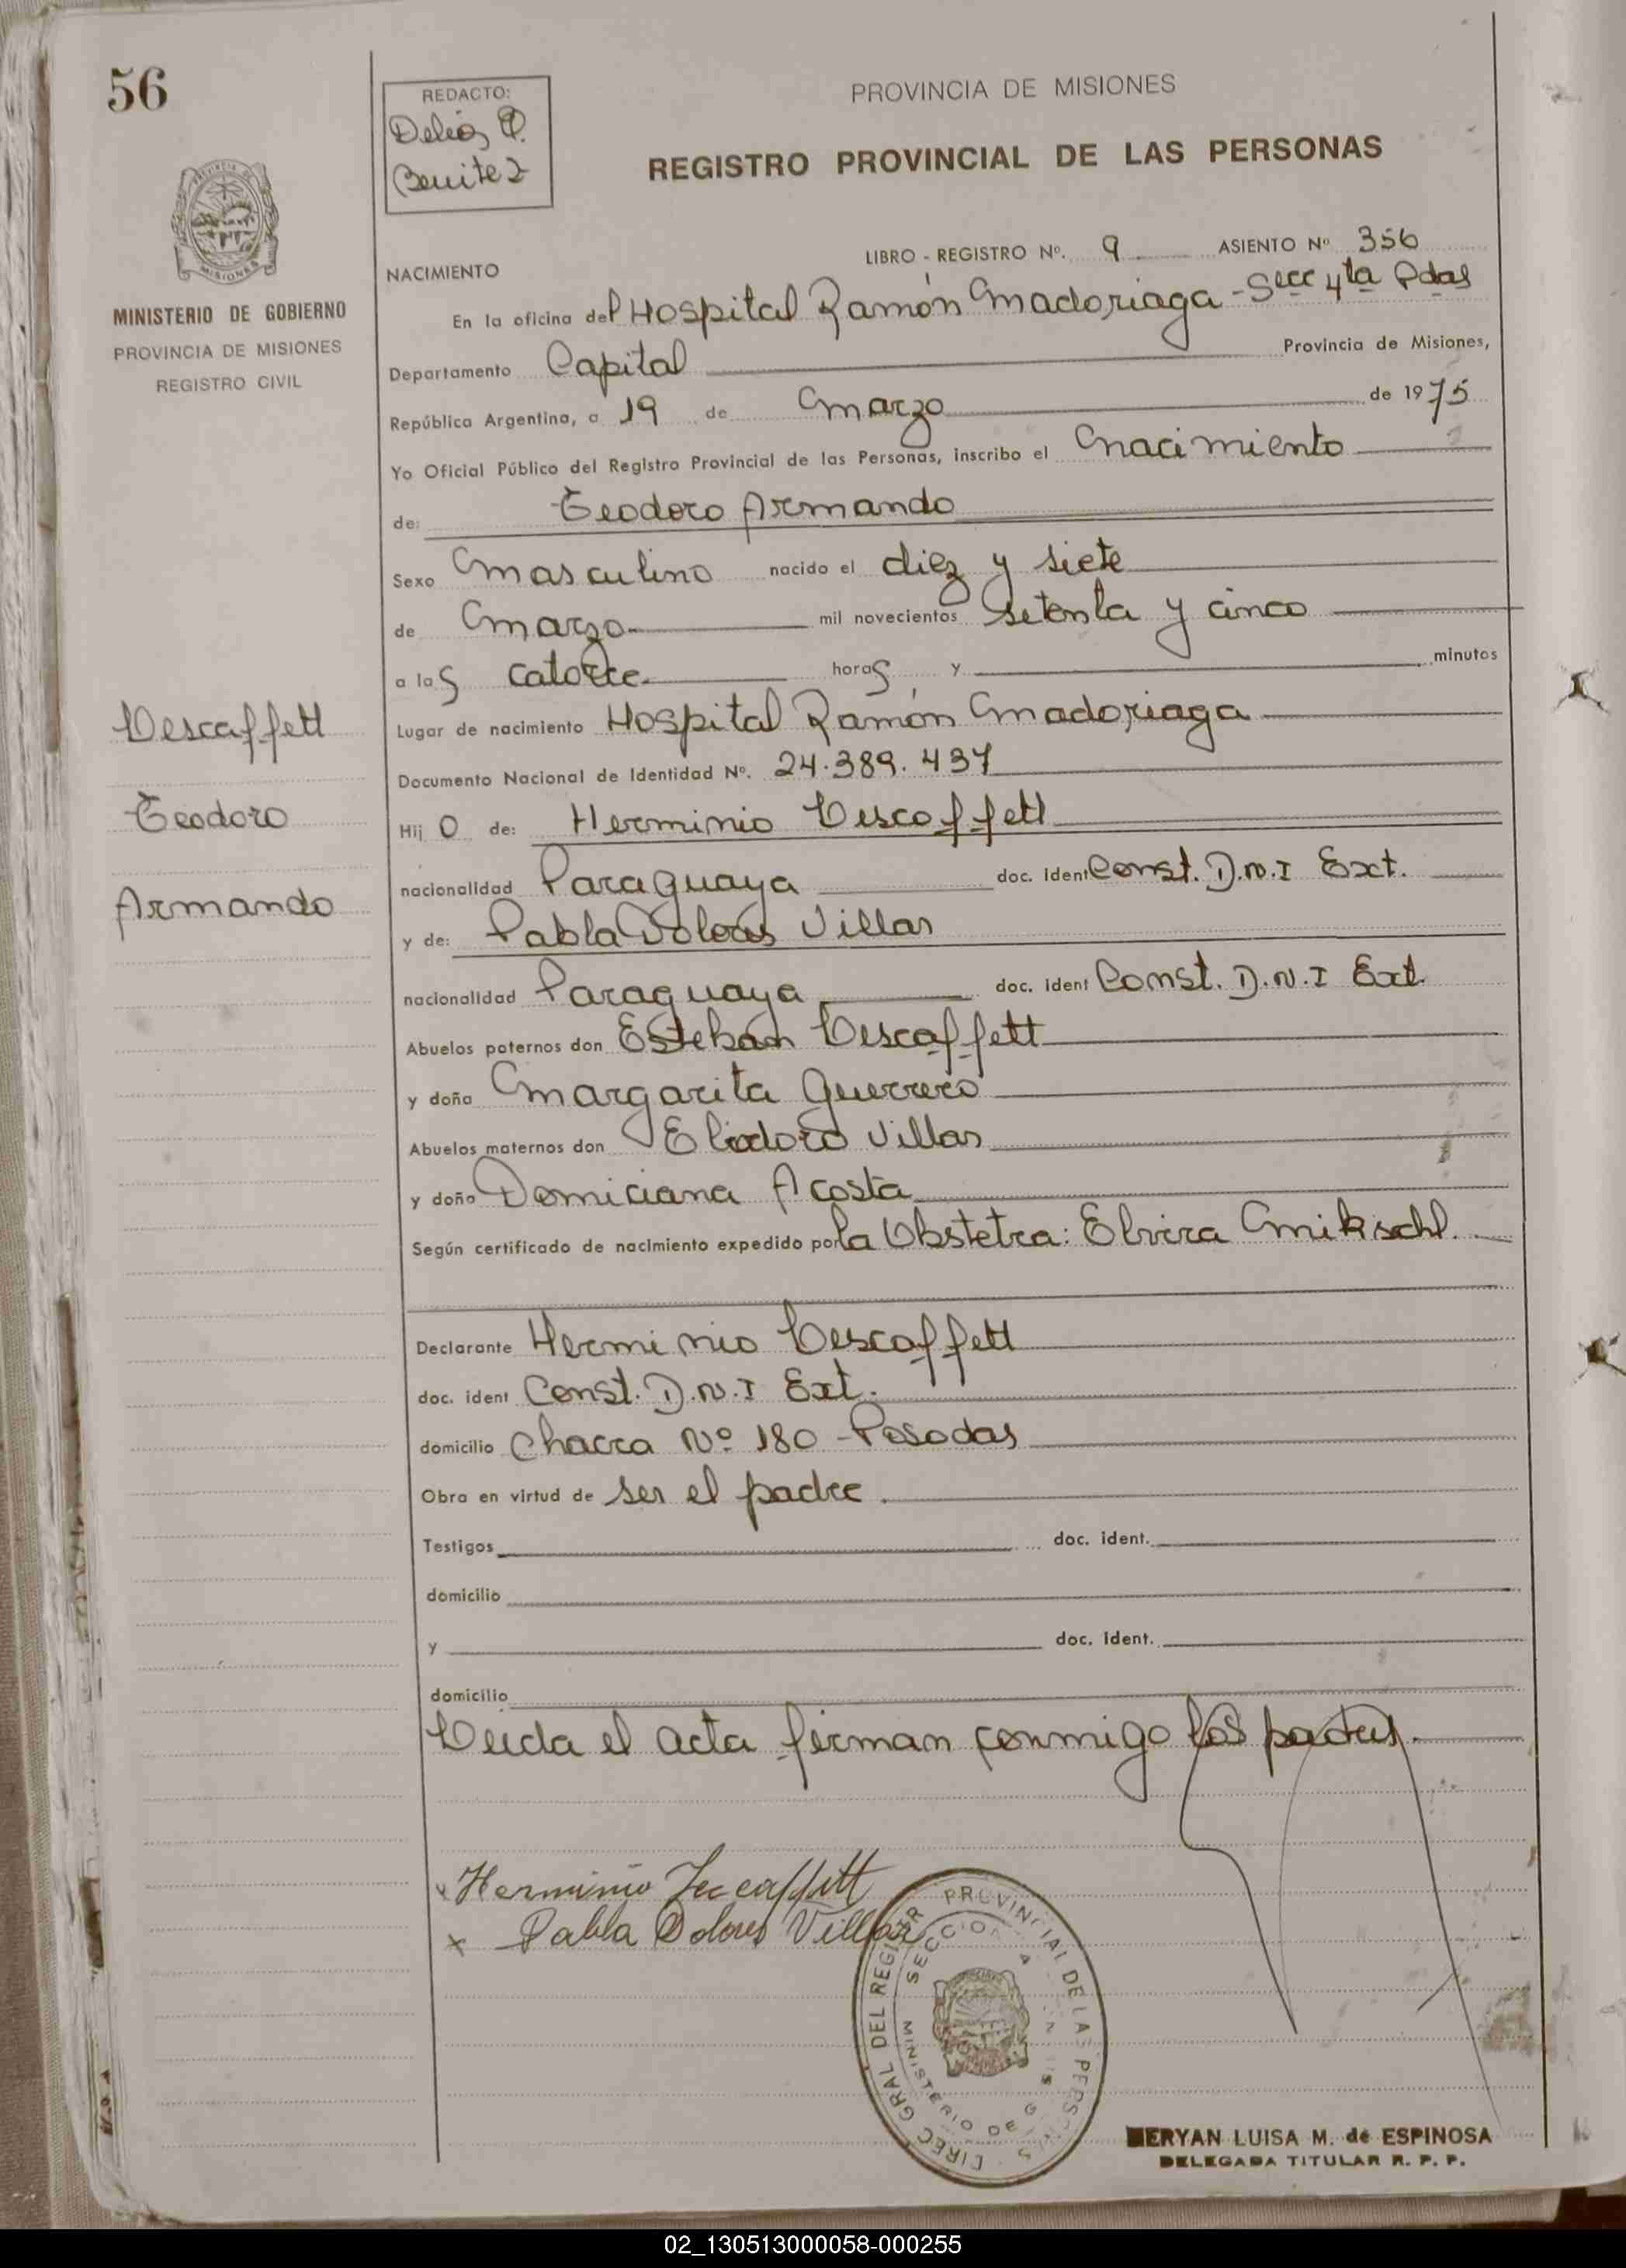 56
REDACTO:
Delia
Benitez
PROVINCIA DE MISIONES
REGISTRO PROVINCIAL DE LAS PERSONAS
MISIONES
MINISTERIO DE GOBIERNO
PROVINCIA DE MISIONES
REGISTRO CIVIL
LIBRO - REGISTRO Nº. 9 ASIENTO Nº 356
NACIMIENTO
En la oficina del Hospital Ramón Madariaga - Secc 4ta Pdas
Departamento Capital Provincia de Misiones,
República Argentina, a 19 de Marzo de 1975
Yo Oficial Público del Registro Provincial de las Personas, inscribo el nacimiento
de: Teodoro Armando
Sexo Masculino nacido el diez y siete
de Marzo mil novecientos setenta y cinco
a las catorce horas y minutos
Lugar de nacimiento Hospital Ramón Madariaga
Documento Nacional de Identidad Nº. 24.389.437
Lescaffett
Teodoro
Armando
Hijo de: Herminio Lescaffett
nacionalidad Paraguaya doc. ident Const. D.N.I Ext.
y de: Pabla Dolores Villar
nacionalidad Paraguaya doc. ident Const. D.N.I Ext.
Abuelos paternos don Esteban Lescaffett
y doña Margarita Guerrero
Abuelos maternos don Eliodoro Villar
y doña Domiciana Acosta
Según certificado de nacimiento expedido por la Obstetra: Elvira Mikischl.
Declarante Herminio Lescaffett
doc. ident Const. D.N.I Ext.
domicilio Chacra Nº 180 - Posadas
Obra en virtud de ser el padre.
Testigos doc. ident.
domicilio
y doc. ident.
domicilio
Leida el acta firman conmigo los padres.
x Herminio Lescaffett
x Pabla Dolores Villar
DIREC GRAL DEL REGISTR PROVINCIAL DE LAS PERSONAS
SECCION 4
MINISTERIO DE G
MERYAN LUISA M. de ESPINOSA
DELEGADA TITULAR R. P. P.
02_130513000058-000255